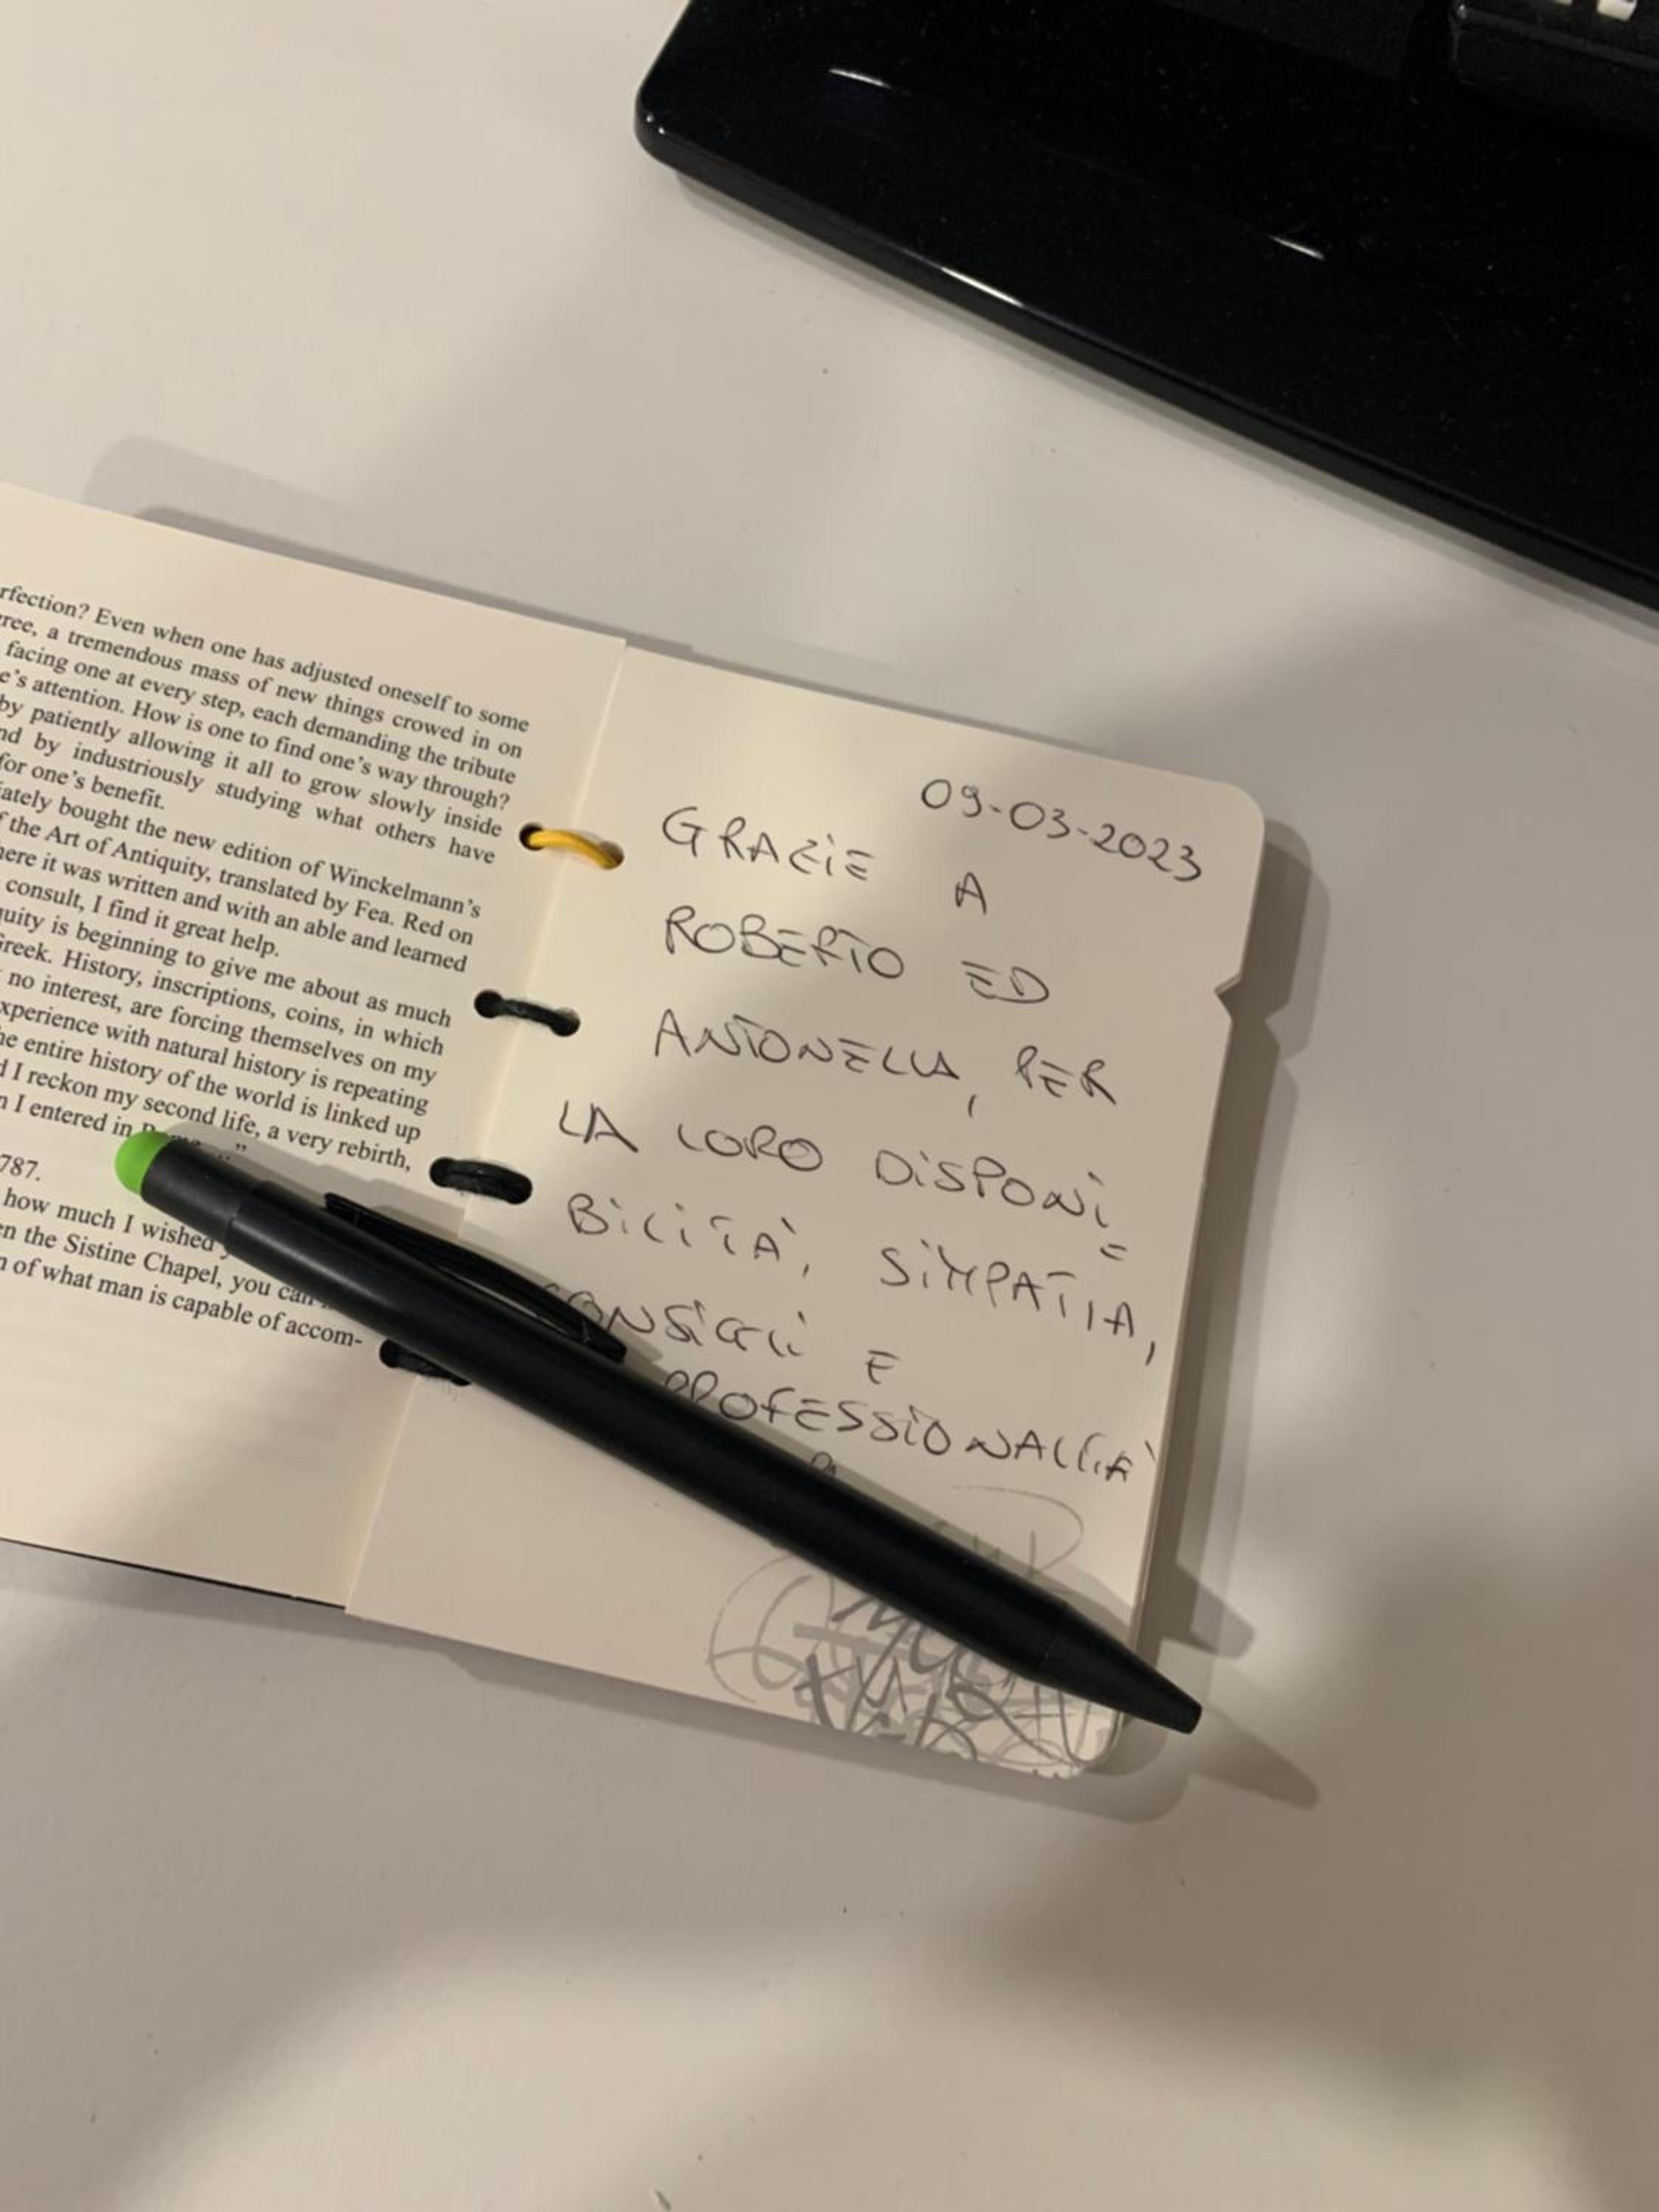 rfection? Even when one has adjusted oneself to some
ree, a tremendous mass of new things crowed in on
facing one at every step, each demanding the tribute
e's attention. How is one to find one's way through?
by patiently allowing it all to grow slowly inside
nd by industriously studying what others have
for one's benefit.
iately bought the new edition of Winckelmann's
f the Art of Antiquity, translated by Fea. Red on
here it was written and with an able and learned
consult, I find it great help.
quity is beginning to give me about as much
Greek. History, inscriptions, coins, in which
no interest, are forcing themselves on my
xperience with natural history is repeating
he entire history of the world is linked up
d I reckon my second life, a very rebirth,
n I entered in
787.
how much I wished
en the Sistine Chapel, you can
n of what man is capable of accom-
09-03-2023
GRAZIE A
ROBERTO ED
ANTONELLA, PER
LA LORO DISPONI=
BILITÀ, SIMPATIA,
CONSIGLI E
PROFESSIONALITÀ